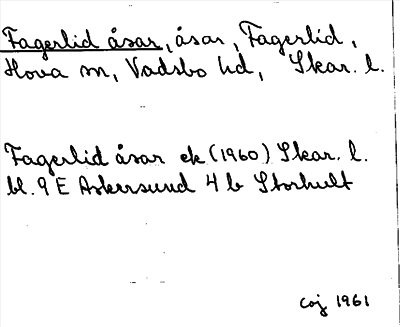 Fagerlid åsar, åsar, Fagerlid,
Hova sn, Vadsbo hd, Skar. l.
Fagerlid åsar ek (1960) Skar. l.
bl. 9 E Askersund 4 b Storhult
COJ 1961